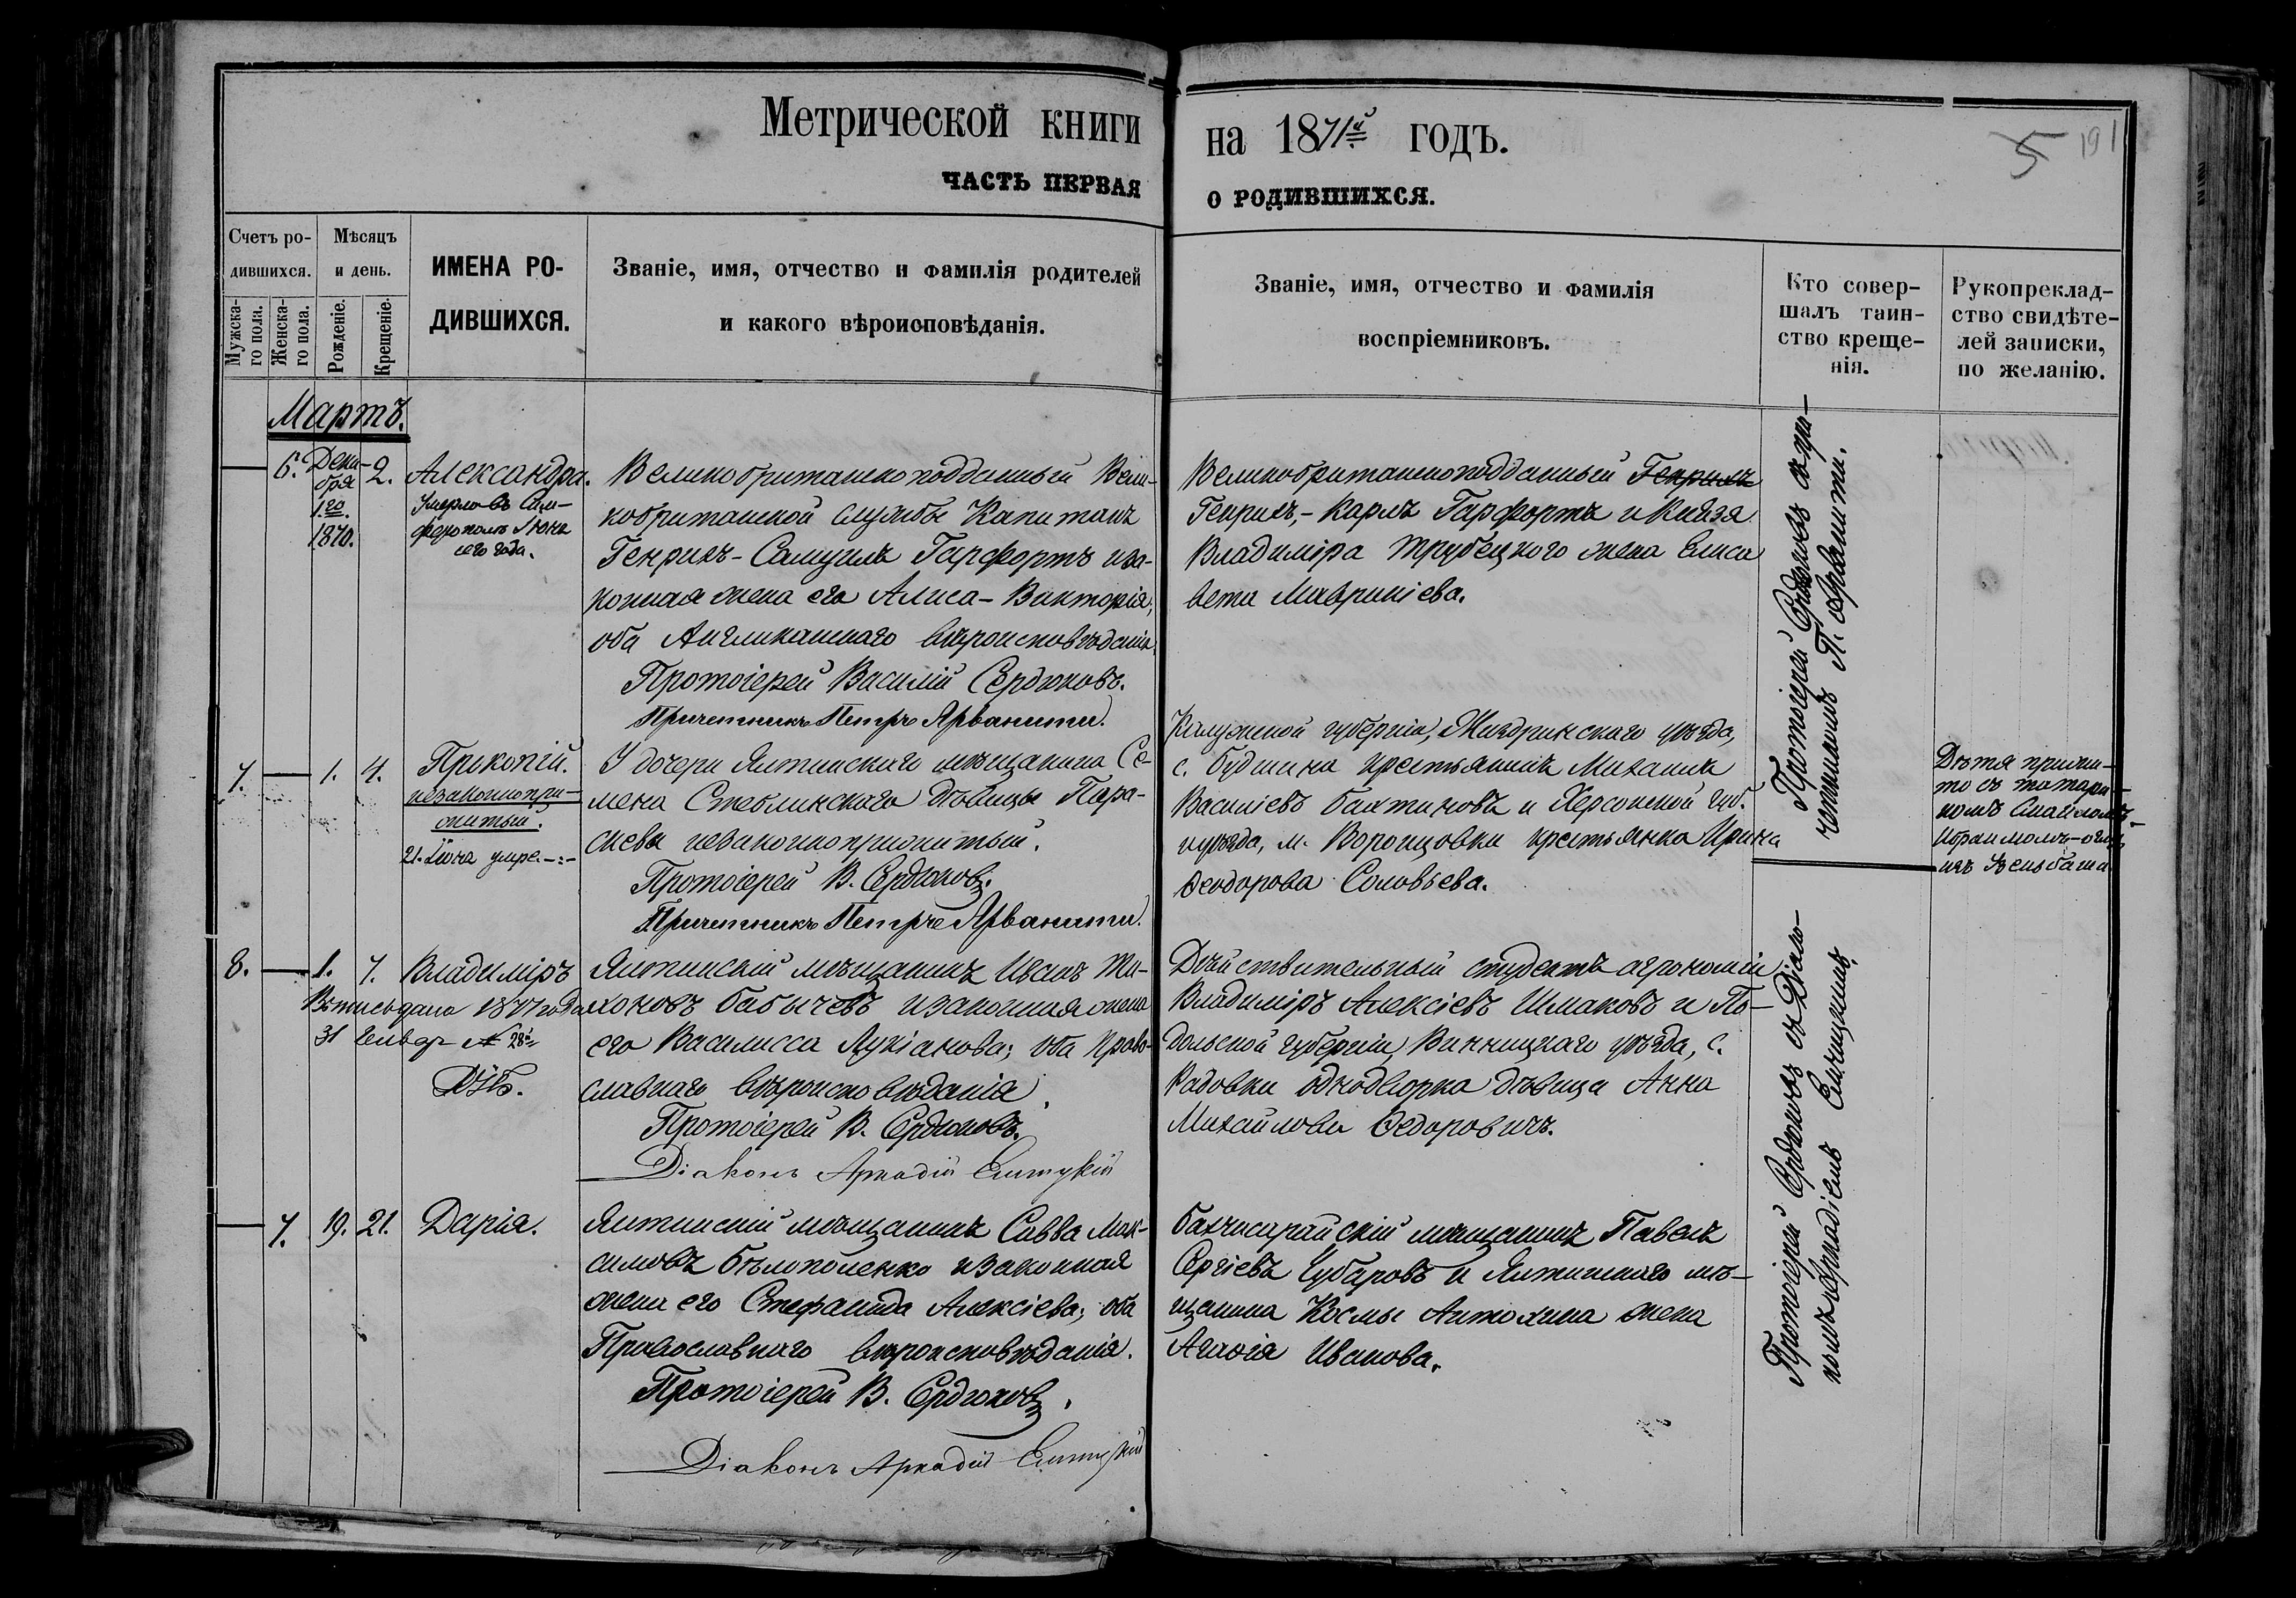 Метрической книги на 1871й годъ.
ЧАСТЬ ПЕРВАЯ О РОДИВШИХСЯ.
5 191
Счетъ ро-
дившихся.
Мужска-
го пола.
Женска-
го пола.
Мѣсяцъ
и день.
Рожденіе.
Крещеніе.
ИМЕНА РО-
ДИВШИХСЯ.
Званіе, имя, отчество и фамилія родителей
и какого вѣроисповѣданія.
Званіе, имя, отчество и фамилія
воспріемниковъ.
Кто совер-
шалъ таин-
ство креще-
нія.
Рукопреклад-
ство свидѣте-
лей записки,
по желанію.
Мартъ.
6.
Дека-
бря
1870.
2.
Александра.
Умерла въ Сим-
ферополѣ Іюня
сего года.
Великобританскоподданный Вели-
кобританской службы Капитанъ
Генрихъ-Самуилъ Гарфортъ и за-
конная жена его Алиса-Викторія;
оба Англиканскаго вѣроисповѣданія.
Протоіерей Василій Сердюковъ.
Причетникъ Петръ Арванити.
Великобританскоподданный Генрихъ
Генрихъ,-Карлъ Гарфортъ и Князя
Владиміра Трубецкого жена Елиса
вета Маврикіева.
Протоіерей Сердюковъ съ при-
четникомъ П. Арванити.
7.
1.
4.
Прокопій.
незаконнопри-
житый.
21. Іюня умре.-:-
У дочери Ялтинскаго мѣщанина Се-
мена Стеблинскаго дѣвицы Пара-
скевы незаконноприжитый.
Протоіерей В. Сердюковъ.
Причетникъ Петръ Арванити.
Калужской губерніи, Жиздринскаго уѣзда,
с. Будшина крестьянинъ Михаилъ
Василіевъ Бахтиновъ и Херсонской губ.
и уѣзда, м. Воронцовки крестьянка Ирина
Ѳеодорова Соловьева.
Дѣтя прижи-
то съ татари-
номъ
8.
1.
7.
Владиміръ
Вѣтпись дана 1887 года
31 Генвар № 28й
Ялтинскій мѣщанинъ Иванъ Ти-
хоновъ Бабичевъ и законная жена
его Василисса Лукіанова; оба Право-
славнаго вѣроисповѣданія.
Протоіерей В. Сердюковъ.
Діаконъ Аркадій Ельчуркій
Дѣйствительный студентъ агрономіи
Владиміръ Алексіевъ Шмаковъ и По-
дольской губерніи, Винницкаго уѣзда, с.
Радовки однодворка дѣвица Анна
Михайлова Ѳедоровичъ.
Протоіерей Сердюковъ съ Діако-
номъ Аркадіемъ
7.
19.
21.
Дарія.
Ялтинскій мѣщанинъ Савва Мак-
симовъ Бѣлополенко и законная
жена его Стефанида Алексіева; оба
Православнаго вѣроисповѣданія.
Протоіерей В. Сердюковъ.
Діаконъ Аркадій
Бахчисарайскій мѣщанинъ Павелъ
Сергіевъ Чубаровъ и Ялтинскаго мѣ-
щанина Космы Антохина жена
Агаѳія Иванова.